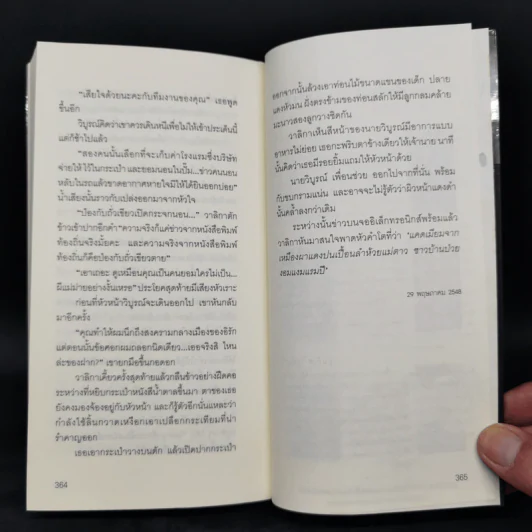 "เสียใจด้วยนะคะกับทีมงานของคุณ" เธอพูด
ขึ้นอีก
วิบูรณ์คิดว่าเขาควรเดินหนีเพื่อไม่ให้เข้าประเด็นนี้
แต่ก็ช้าไปแล้ว
"สองคนนั้นเลือกที่จะเก็บค่าโรงแรมซึ่งบริษัท
จ่ายให้ ไว้ในกระเป๋า และยอมนอนในปั๊ม...ข่าวคนนอน
หลับในรถแล้วขาดอากาศหายใจมีให้ได้ยินออกบ่อย"
น้ำเสียงนั้นราวกับเปล่งออกมาจากหัวใจ
"ป้องกับถั่วเขียวเปิดกระจกนอน..." วาลิกาตัก
ข้าวเข้าปากอีกคำ "ความจริงก็แค่ข่าวจากหนังสือพิมพ์
ท้องถิ่นจริงมั้ยคะ และความจริงจากหนังสือพิมพ์
ท้องถิ่นก็คือป้องกับถั่วเขียวตาย"
"เอาเถอะ ดูเหมือนคุณเป็นคนยอมใครไม่เป็น...
ผีแม่ม่ายอย่างงั้นเหรอ" ประโยคสุดท้ายมีเสียงหัวเราะ
ก่อนที่หัวหน้าวิบูรณ์จะเดินออกไป เขาหันกลับ
มาอีกครั้ง
"คุณทำให้ผมนึกถึงสงครามกลางเมืองของอิรัก
แต่ตอนนั้นข้อศอกผมถลอกนิดเดียว...เธอจริงสิ ไหน
ล่ะของฝาก?" เขายกมือขึ้นกอดอก
วาลิกาเคี้ยวครั้งสุดท้ายแล้วกลืนข้าวอย่างฝืดคอ
ระหว่างที่หยิบกระเป๋าหนังสีน้ำตาลขึ้นมา ตาของเธอ
ยังคงมองจ้องอยู่กับหัวหน้า และก็รู้ตัวอีกนั่นแหละว่า
กำลังใช้ลิ้นกวาดเหงือกเอาเปลือกกระเทียมที่น่า
รำคาญออก
เธอเอากระเป๋าวางบนตัก แล้วเปิดปากกระเป๋า
364
ออกจากนั้นล้วงเอาท่อนไม้ขนาดแขนของเด็ก ปลาย
แดงหัวมน ฝั่งตรงข้ามของท่อนสลักให้มีลูกกลมคล้าย
มะนาวสองลูกวางชิดกัน
วาลิกาเห็นสีหน้าของนายวิบูรณ์มีอาการแบบ
อาหารไม่ย่อย เธอกะพริบตาข้างเดียวให้เจ้านาย นาที
นั้นคิดว่าเธอมีรอยยิ้มแถมให้หัวหน้าด้วย
นายวิบูรณ์ เพื่อนช่วย ออกไปจากที่นั่น พร้อม
กับขบกรามแน่น และอาจจะไม่รู้ตัวว่าผิวหน้าแดงดำ
นั้นคล้ำลงกว่าเดิม
ระหว่างนั้นข่าวบนจออิเล็กทรอนิกส์พร้อมแล้ว
วาลิกาหันมาสนใจพาดหัวคำโตที่ว่า 'แคดเมียมจาก
เหมืองผาแดงปนเปื้อนลำห้วยแม่ตาว ชาวบ้านป่วย
งอมแงมแรมปี'
29 พฤษภาคม 2548
365